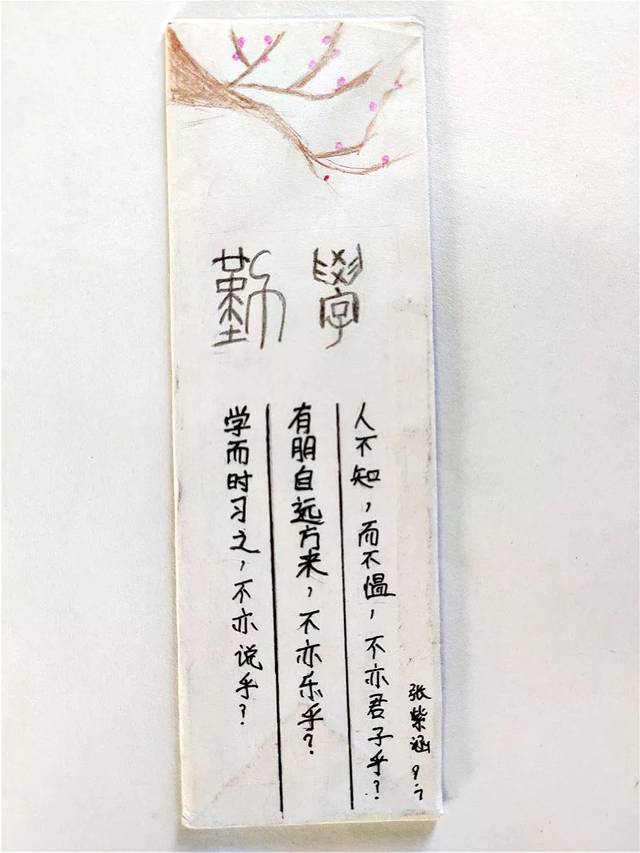 勤學
学而时习之，不亦说乎？
有朋自远方来，不亦乐乎？
人不知，而不愠，不亦君子乎？
张紫涵